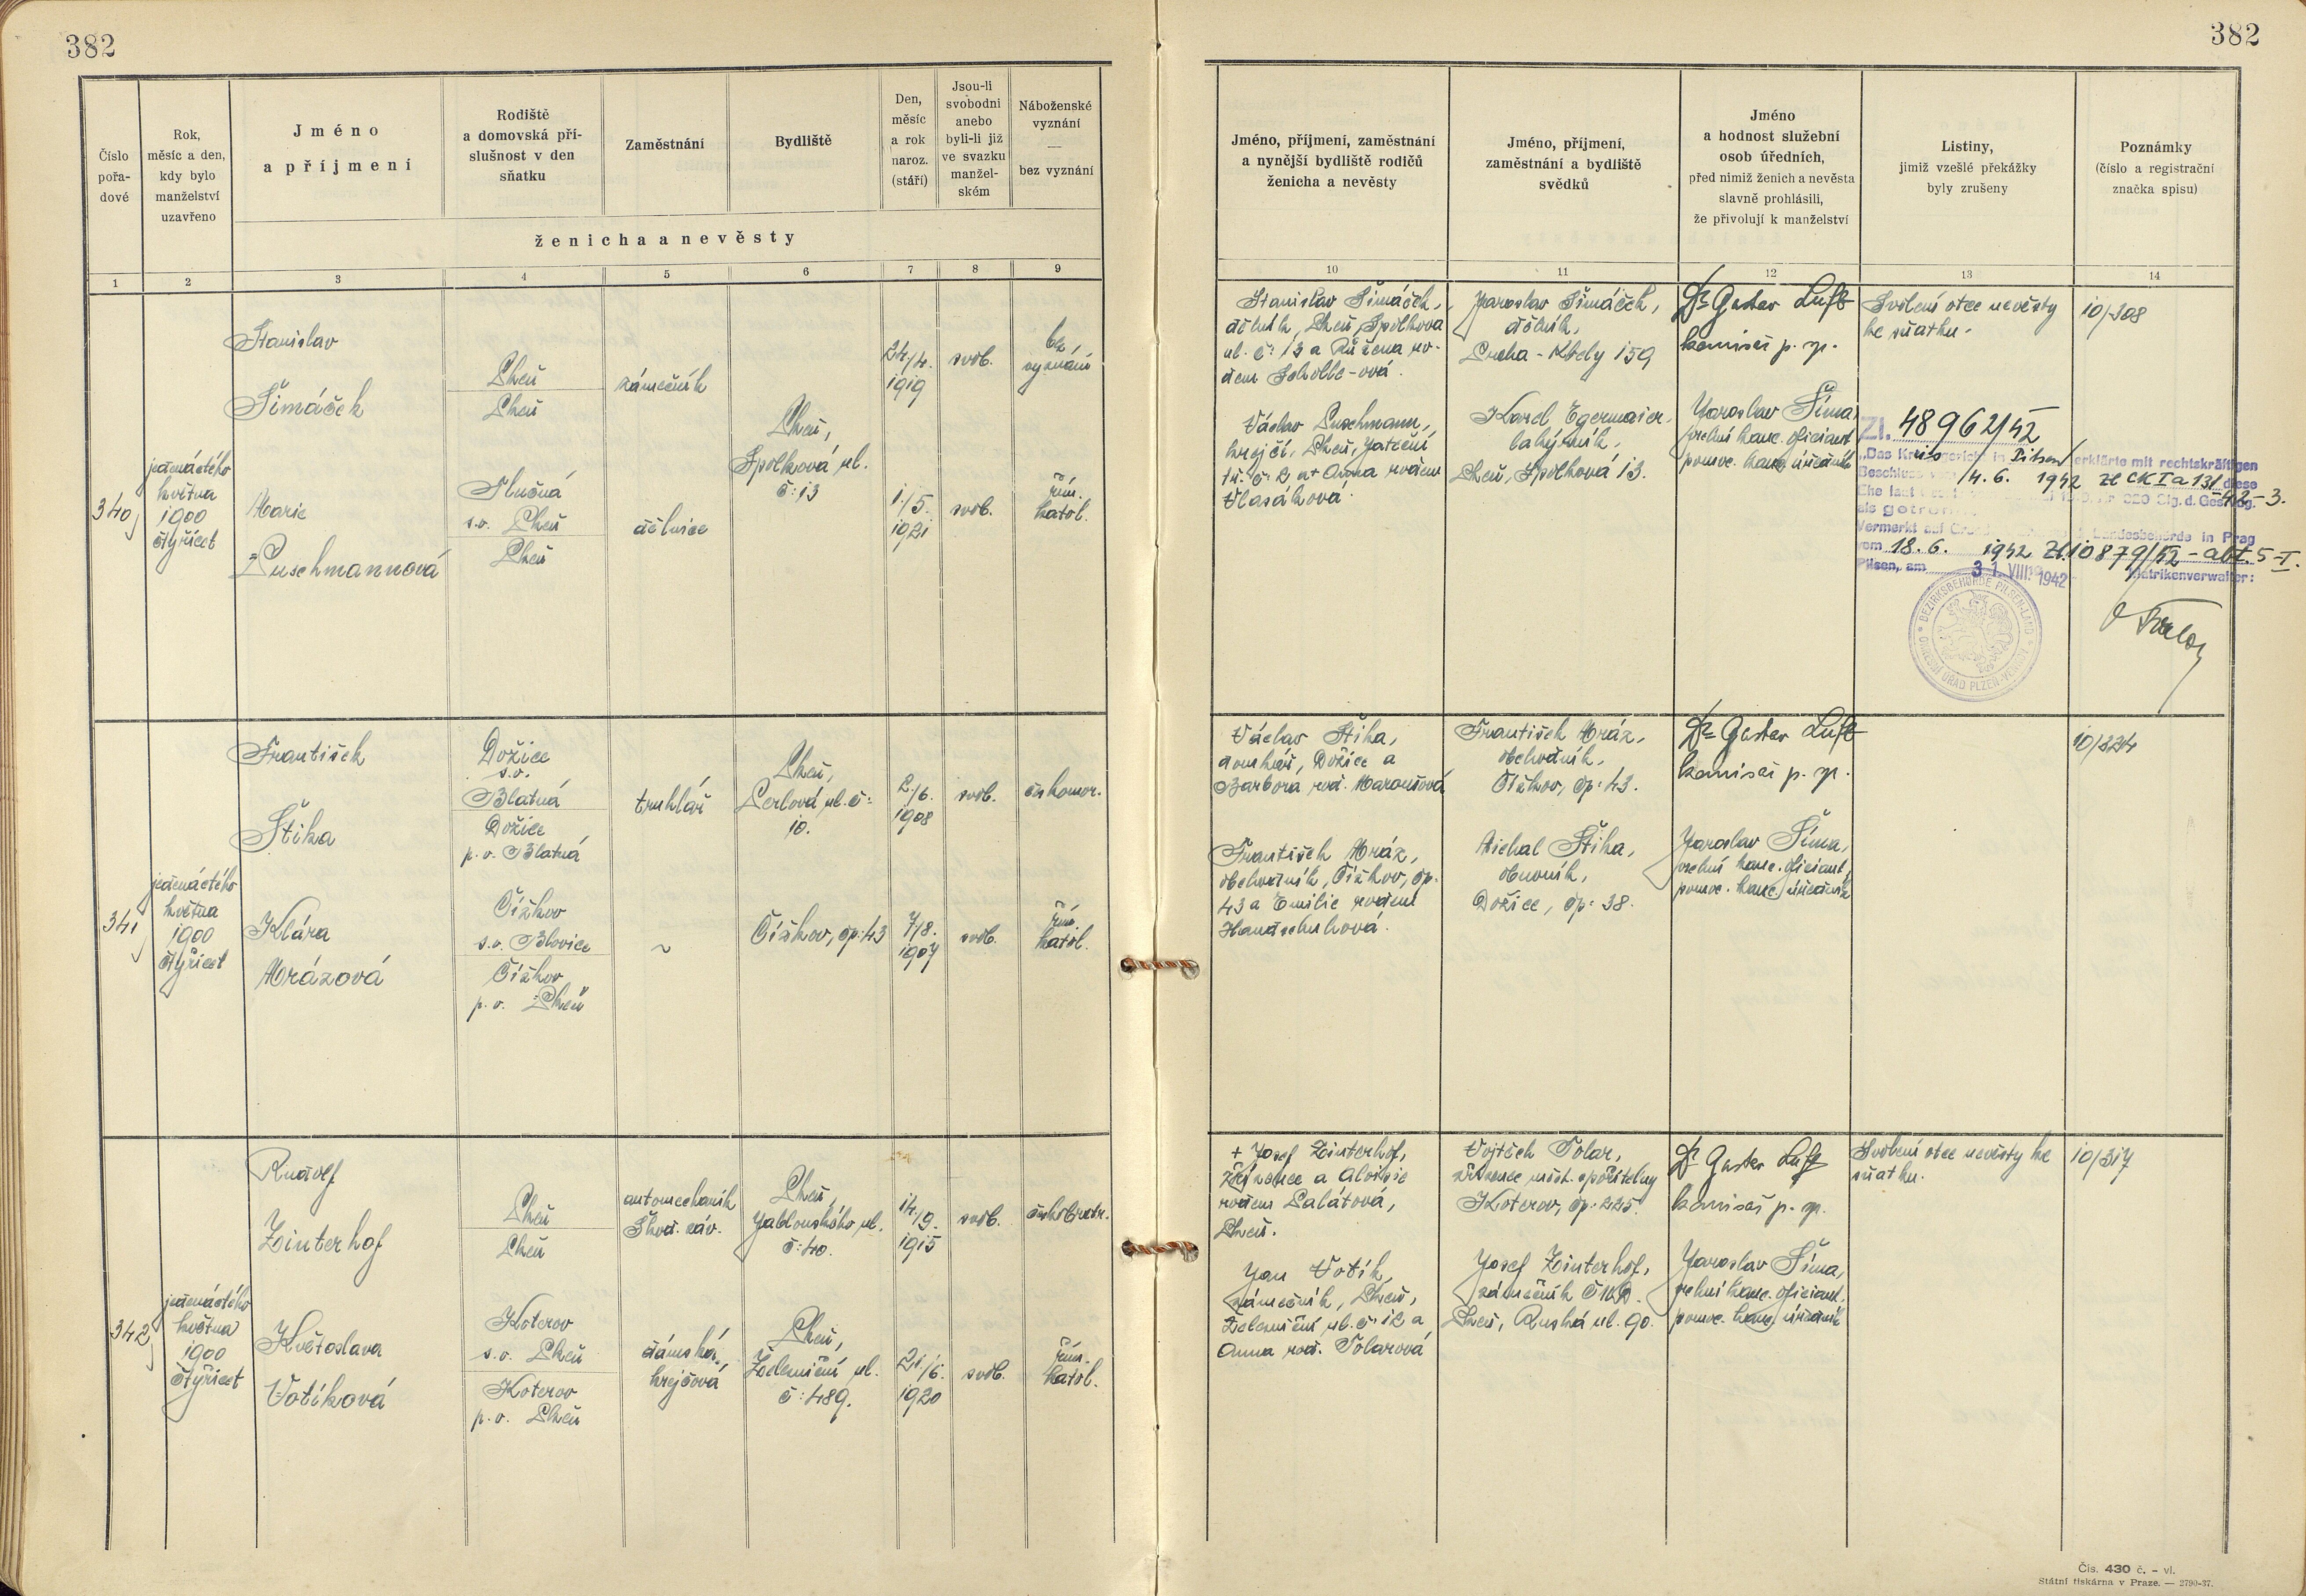 382
382
Číslo
pořa-
dové
Rok,
měsíc a den,
kdy bylo
manželství
uzavřeno
Jméno
a příjmení
Rodiště
a domovská pří-
slušnost v den
sňatku
Zaměstnání
Bydliště
Den,
měsíc
a rok
naroz.
(stáří)
Jsou-li
svobodni
anebo
byli-li již
ve svazku
manžel-
ském
Náboženské
vyznání
—
bez vyznání
ženicha a nevěsty
Jméno, příjmení, zaměstnání
a nynější bydliště rodičů
ženicha a nevěsty
Jméno, příjmení,
zaměstnání a bydliště
svědků
Jméno
a hodnost služební
osob úředních,
před nimiž ženich a nevěsta
slavně prohlásili,
že přivolují k manželství
Listiny,
jimiž vzešlé překážky
byly zrušeny
Poznámky
(číslo a registrační
značka spisu)
1 2 3 4 5 6 7 8 9
10 11 12 13 14
340
jedenáctého
května
1900
čtyřicet
Stanislav
Šimáček
Plzeň
Plzeň
zámečník
Plzeň,
Spolková ul.
č: 13
24./4.
1919
svob.
bez
vyznání
Marie
Puschmannová
Slučná
s.o. Plzeň
Plzeň
dělnice
1./5.
1921
svob.
řím.
katol.
Stanislav Šimáček,
dělník, Plzeň, Spolková
ul. č: 13 a Růžena ro-
dem Scholle-ová.
Václav Puschmann,
krejčí, Plzeň, Jateční
tř. č: 2 a + Anna rodem
Vlasáková.
Jaroslav Šimáček,
dělník,
Praha - Kbely 159
Karel Egermaier,
lakýrník,
Plzeň, Spolková 13.
Dr Gustav Luft
komisař p. sp.
Jaroslav Šíma,
vrchní kanc. oficiant
pomoc. kanc. úředník
Svolení otce nevěsty
ke sňatku.
10/308
Zl. 48962/42
„Das Kreisgericht in Pilsen erklärte mit rechtskräftigen
Beschluss vom 14. 6. 1942 Zl CK I a 131/42-3. diese
Ehe laut
als getrennt
Vermerkt auf Landesbehörde in Prag
vom 18. 6. 1942 Zl. 10879/42 - abt. 5-I.
Pilsen, am 31. VIII. 1942 Matrikenverwalter:
BEZIRKSBEHÖRDE PILSEN-LAND
OKRESNÍ ÚŘAD PLZEŇ-VENKOV
341
jedenáctého
května
1900
čtyřicet
František
Štika
Dožice
s.o.
Blatná
Dožice
p. o. Blatná
truhlář
Plzeň,
Perlová ul. č:
10.
2./6.
1908
svob.
českomor.
Klára
Mrázová
Čížkov
s.o. Blovice
Čížkov
p. o. Plzeň
~
Čížkov, čp: 43
7/8.
1907
svob.
řím.
katol.
Václav Štika,
domkář, Dožice a
Barbora rod. Maroušová
František Mráz,
obchodník, Čížkov, čp.
43 a Emilie rodem
Handschuhová.
František Mráz,
obchodník,
Čížkov, čp: 43.
Michal Štika,
obuvník,
Dožice, čp: 38.
Dr Gustav Luft
komisař p. sp.
Jaroslav Šíma,
vrchní kanc. oficiant,
pomoc. kanc. úředník
10/334
342
jedenáctého
května
1900
čtyřicet
Rudolf
Zinterhof
Plzeň
Plzeň
automechanik
Škod. záv.
Plzeň,
Jablonského ul.
č: 40.
14./9.
1915
svob.
českobratr.
Květoslava
Votíková
Koterov
s.o. Plzeň
Koterov
p. o. Plzeň
dámská
krejčová
Plzeň,
Železniční ul.
č: 489.
21./6.
1920
svob.
řím.
katol.
+ Josef Zinterhof,
a Aloisie
rodem Salátová,
Plzeň.
Jan Votík,
zámečník, Plzeň,
Železniční ul. č: 12 a
Anna rod. Tolarová
Vojtěch Tolar,
zřízenec měst. spořitelny
Koterov, čp: 225.
Josef Zinterhof,
zámečník ČMD.
Plzeň, Ruská ul. 90.
Dr Gustav Luft
komisař p. sp.
Jaroslav Šíma,
vrchní kanc. oficiant.
pomoc. kanc. úředník
Svolení otce nevěsty ke
sňatku.
10/317
Čís. 430 č. - vl.
Státní tiskárna v Praze. — 2790-37.